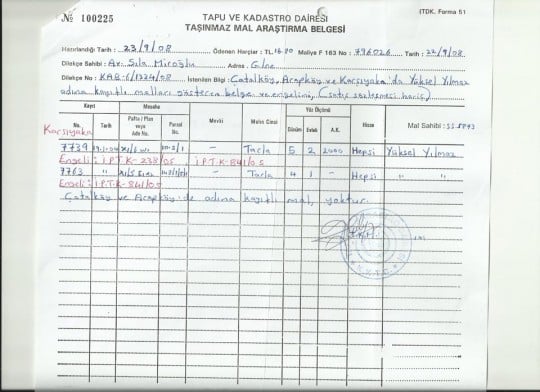 (TDK. Forma 51
№ 100225
TAPU VE KADASTRO DAİRESİ
TAŞINMAZ MAL ARAŞTIRMA BELGESİ
Hazırlandığı Tarih : 23/9/08 Ödenen Harçlar : TL. 16.80 Maliye F 163 No : 796026 Tarih : 22/9/08
Dilekçe Sahibi : Av. Sıla Miroğlu Adres : G/ne
Dilekçe No : KAB-6/1224/08 İstenilen Bilgi : Çatalköy, Arapköy ve Karşıyaka'da Yüksel Yılmaz
adına kayıtlı malları gösteren belge ve engelini, (satış sözleşmesi hariç)
Kayıt Mesaha Mevki Malın Cinsi Yüz Ölçümü Hisse Mal Sahibi :
No. Tarih Pafta / Plan veya Ada No. Parsel No. Dönüm Evlek A.K.
Karşıyaka
7739 — Tarla 5 2 2000 Hepsi Yüksel Yılmaz
Engeli : İ.P.T.K- 238/05 İ.P.T.K-841/05
7763 " — Tarla 4 1 — Hepsi " "
Engeli : İ.P.T.K-841/05
Çatalköy ve Arapköy'de adına kayıtlı mal yoktur.